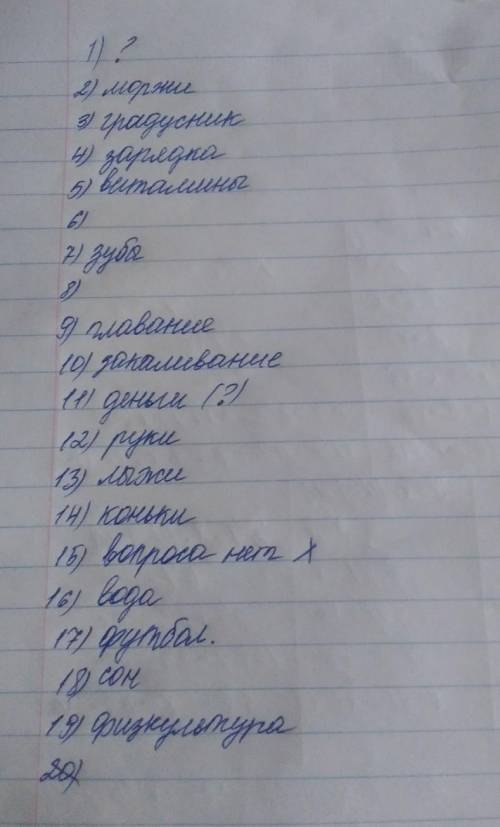 1) ?
2) моржи
3) градусник
4) зарядка
5) витамины
6)
7) зуба
8)
9) плавание
10) закаливание
11) деньги (?)
12) руки
13) лыжи
14) коньки
15) вопроса нет х
16) вода
17) футбол.
18) сон
19) физкультура
20)